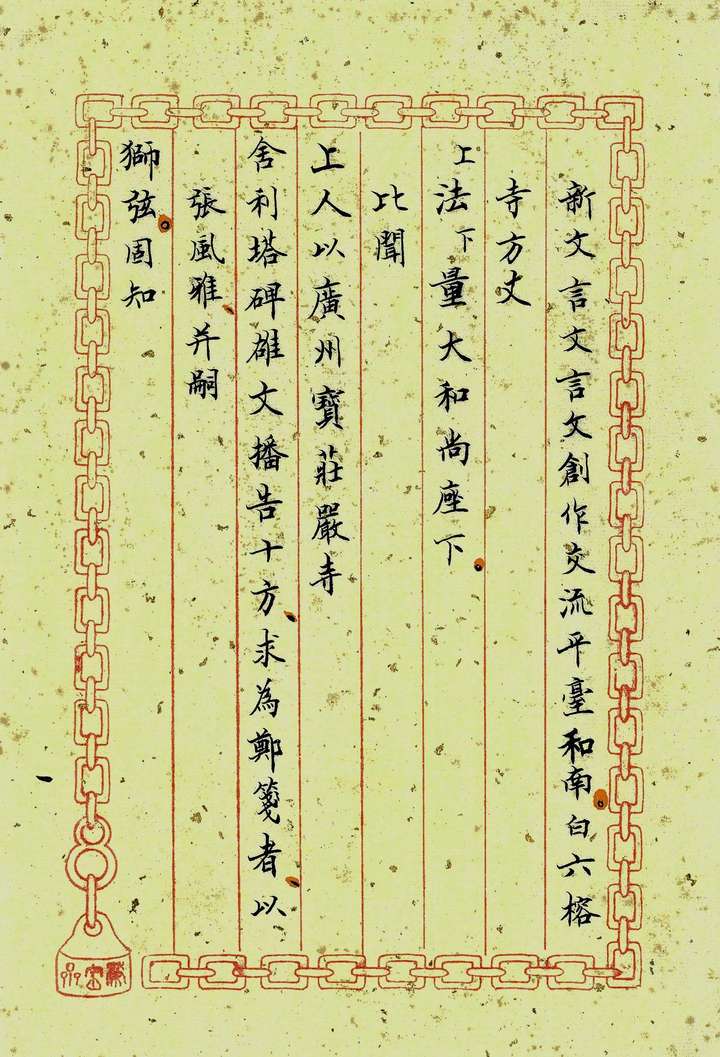 新文言文言文創作交流平臺和南白六榕
寺方丈
上法下量大和尚座下
比聞
上人以廣州寶莊嚴寺
舍利塔碑雄文播告十方求為鄭箋者以
張風雅并嗣
獅弦固知